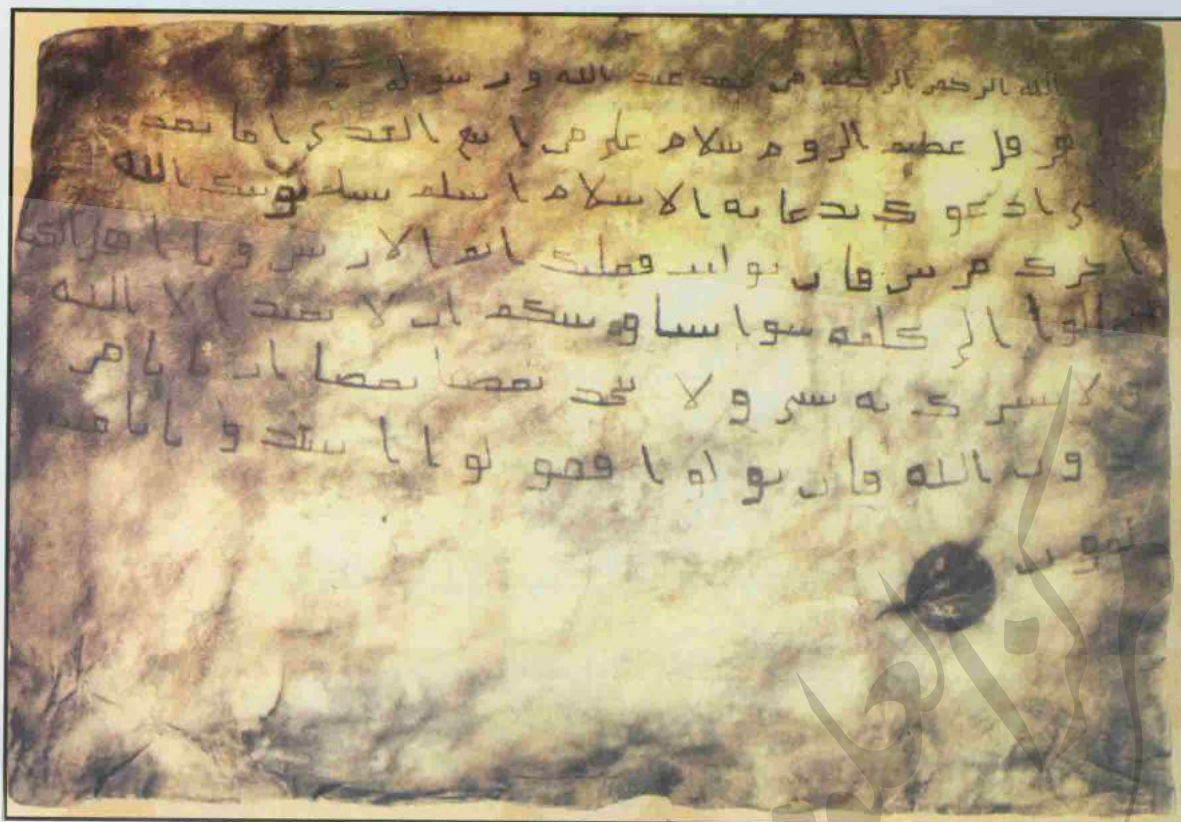 الله الرحمن الرحيم من محمد عبد الله ورسوله
هرقل عظيم الروم سلام على من اتبع الهدى اما بعد
ادعوك بدعاية الاسلام اسلم تسلم يوتك الله
اجرك مرتين فان توليت فعليك اثم الاريسين ويا اهل الكتب
تعالوا الى كلمه سوا بيننا وبينكم ان لا نعبد الا الله
ولا نشرك به شى ولا يتخذ بعضنا بعضا اربابا من
دون الله فان تولوا فقولوا اشهدوا بانا
مسلمون